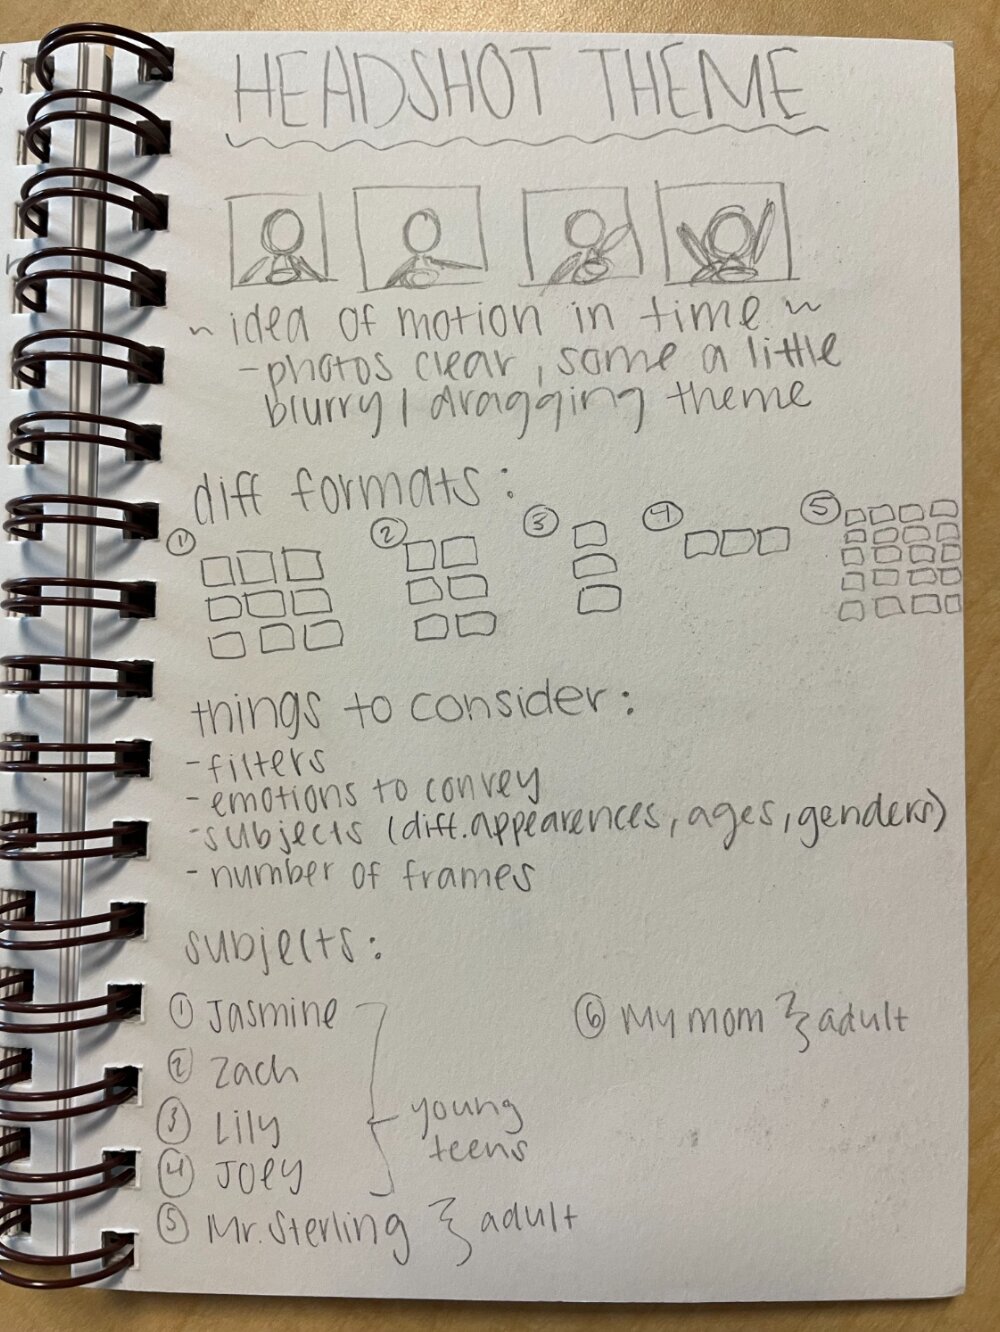 HEADSHOT THEME
~ idea of motion in time ~
- photos clear, some a little
blurry / dragging theme
diff formats:
① ② ③ ④ ⑤
things to consider:
- filters
- emotions to convey
- subjects (diff. appearences, ages, genders)
- number of frames
subjects:
① Jasmine
② Zach
③ Lily
④ Joey
young
teens
⑤ Mr. Sterling } adult
⑥ My mom } adult